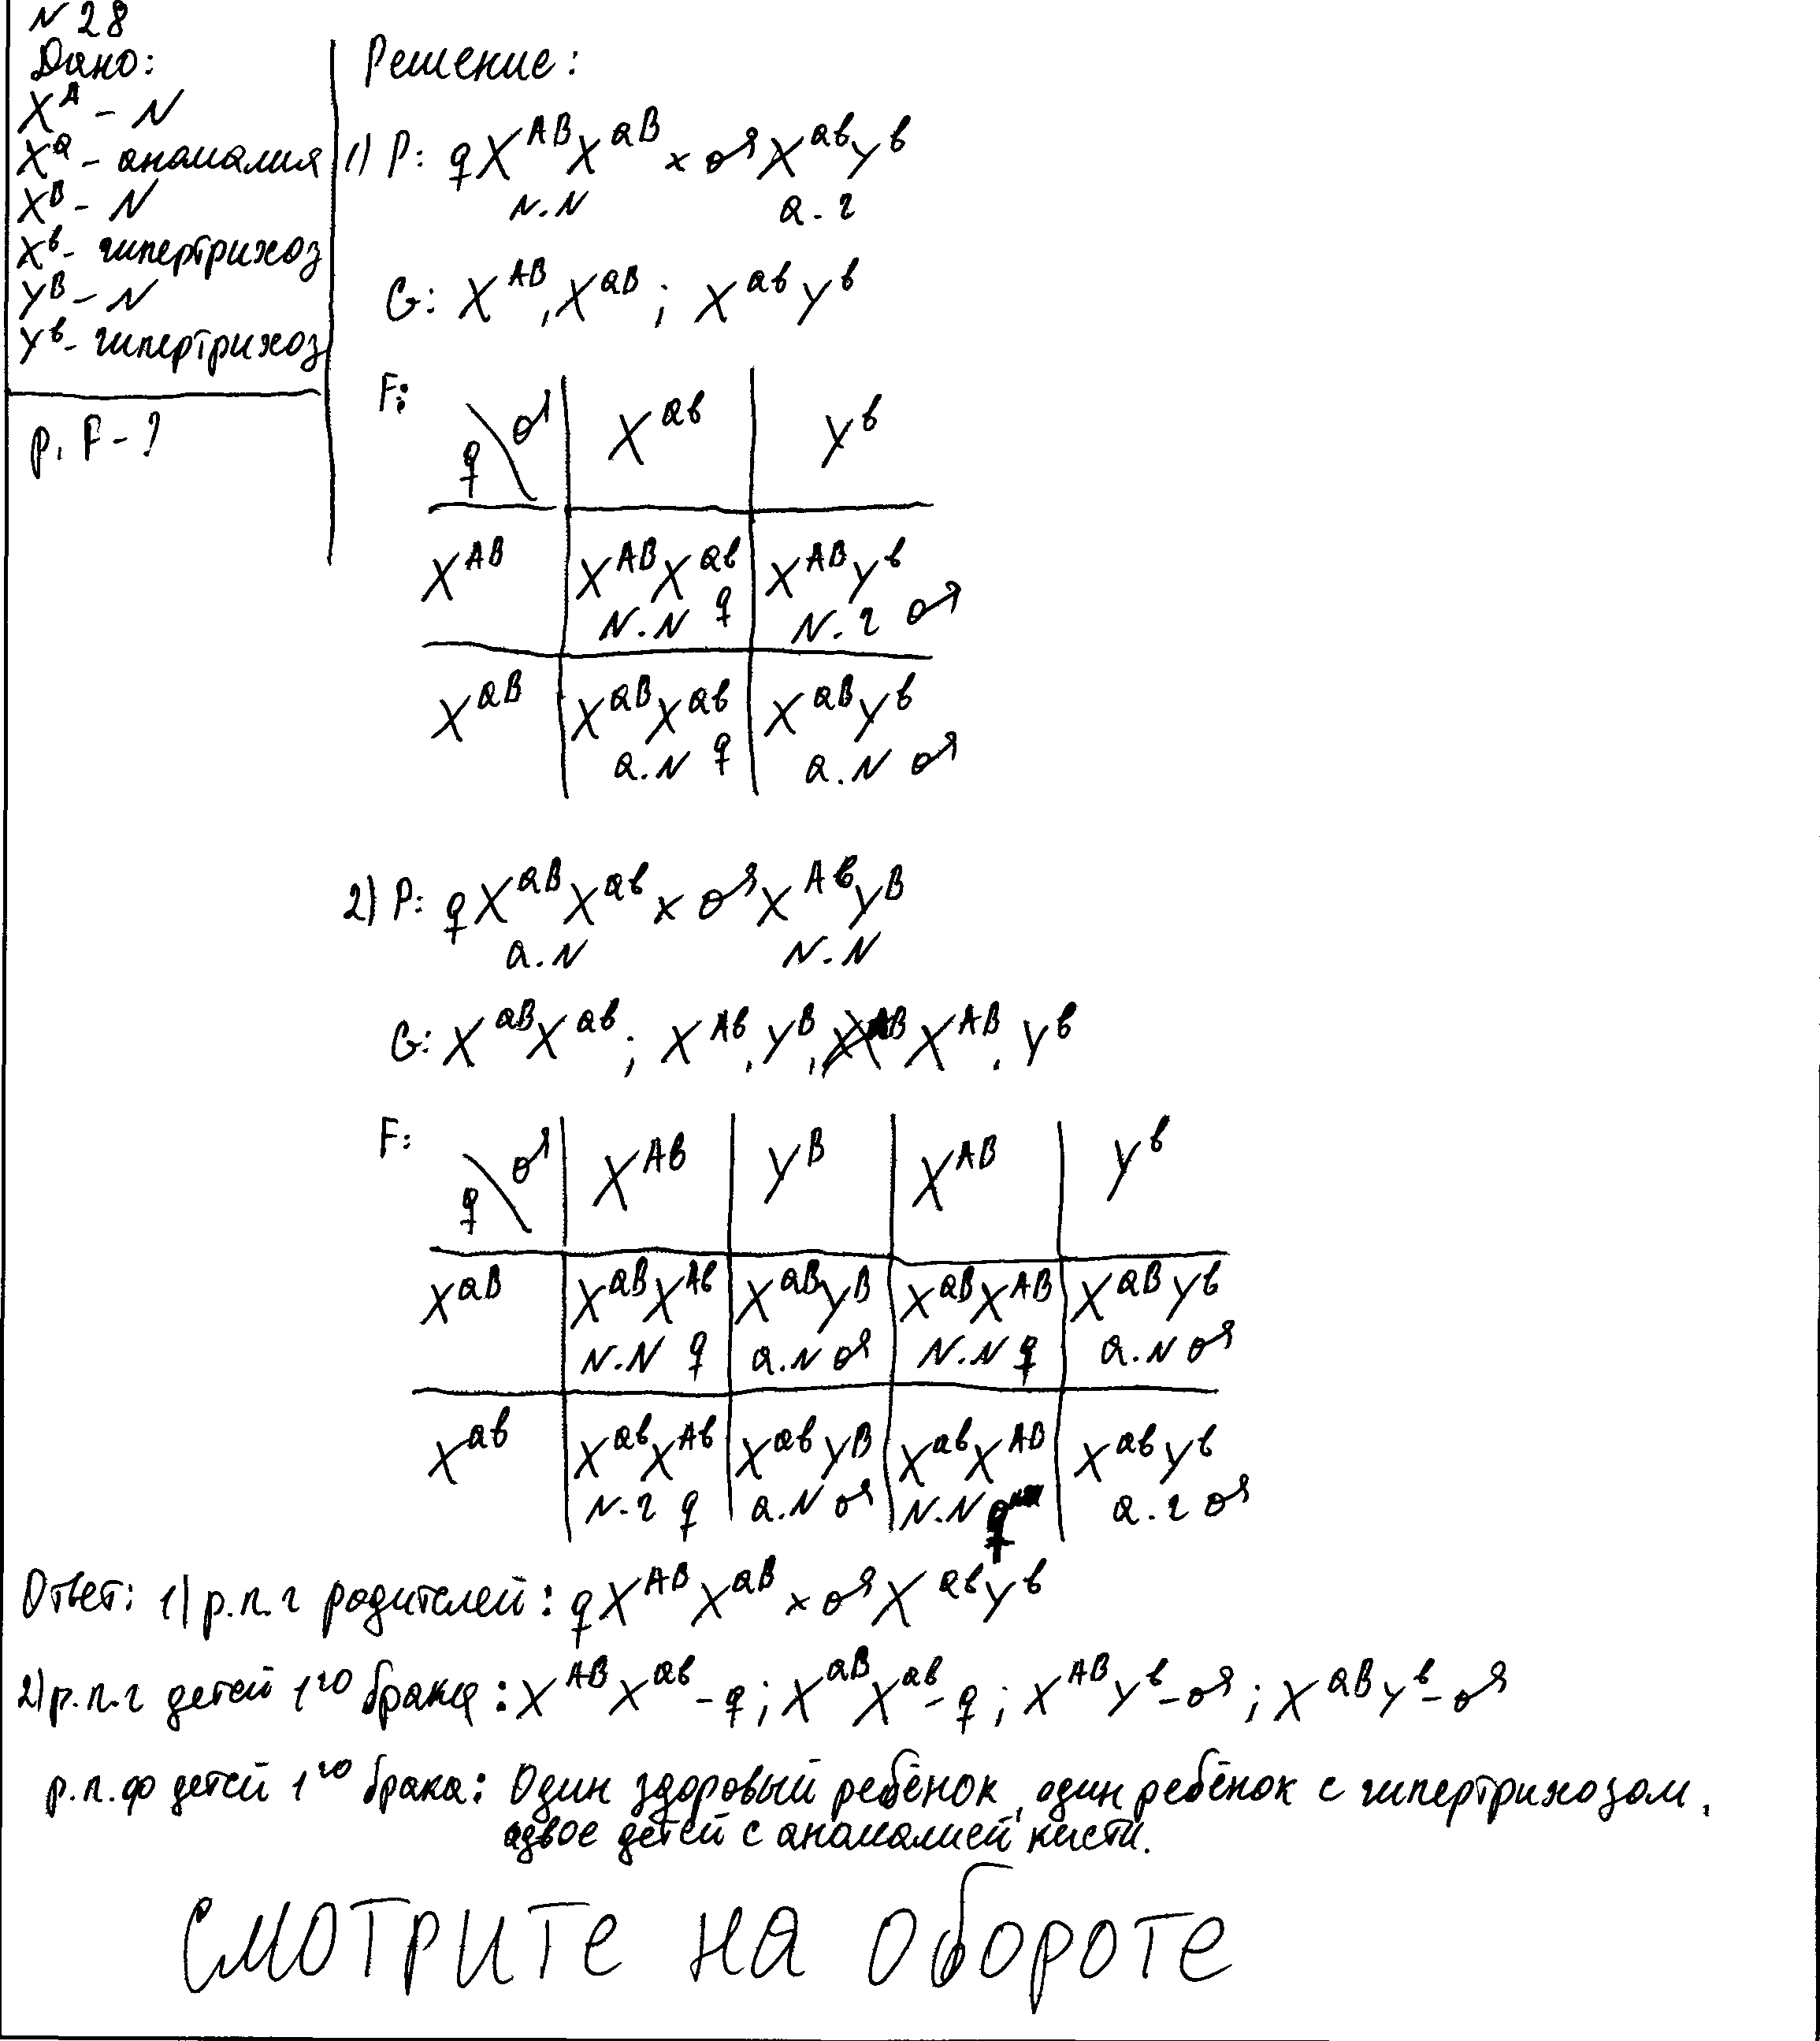 N 28
Дано:
X^A - N
X^a - аномалия
X^B - N
X^b - гипертрихоз
Y^B - N
Y^b - гипертрихоз
P, F - ?
Решение:
1) P: ♀ X^AB X^aB × ♂ X^ab Y^b
N.N а.г
G: X^AB, X^aB ; X^ab Y^b
F:
♀ \ ♂ X^ab Y^b
X^AB X^AB X^ab X^AB Y^b
N.N ♀ N.г ♂
X^aB X^aB X^ab X^aB Y^b
а.N ♀ а.N ♂
2) P: ♀ X^aB X^ab × ♂ X^Ab Y^B
а.N N.N
G: X^aB X^ab ; X^Ab, Y^B, X^AB, Y^b
F:
♀ \ ♂ X^Ab Y^B X^AB Y^b
X^aB X^aB X^Ab X^aB Y^B X^aB X^AB X^aB Y^b
N.N ♀ а.N ♂ N.N ♀ а.N ♂
X^ab X^ab X^Ab X^ab Y^B X^ab X^AB X^ab Y^b
N.г ♀ а.N ♂ N.N ♀ а.г ♂
Ответ: 1) р.п.г родителей: ♀ X^AB X^aB × ♂ X^ab Y^b
2) р.п.г детей 1^го брака: X^AB X^ab - ♀; X^aB X^ab - ♀; X^AB Y^b - ♂; X^aB Y^b - ♂
р.п.ф детей 1^го брака: Один здоровый ребёнок, один ребёнок с гипертрихозом,
двое детей с аномалией кисти.
СМОТРИТЕ НА ОБОРОТЕ